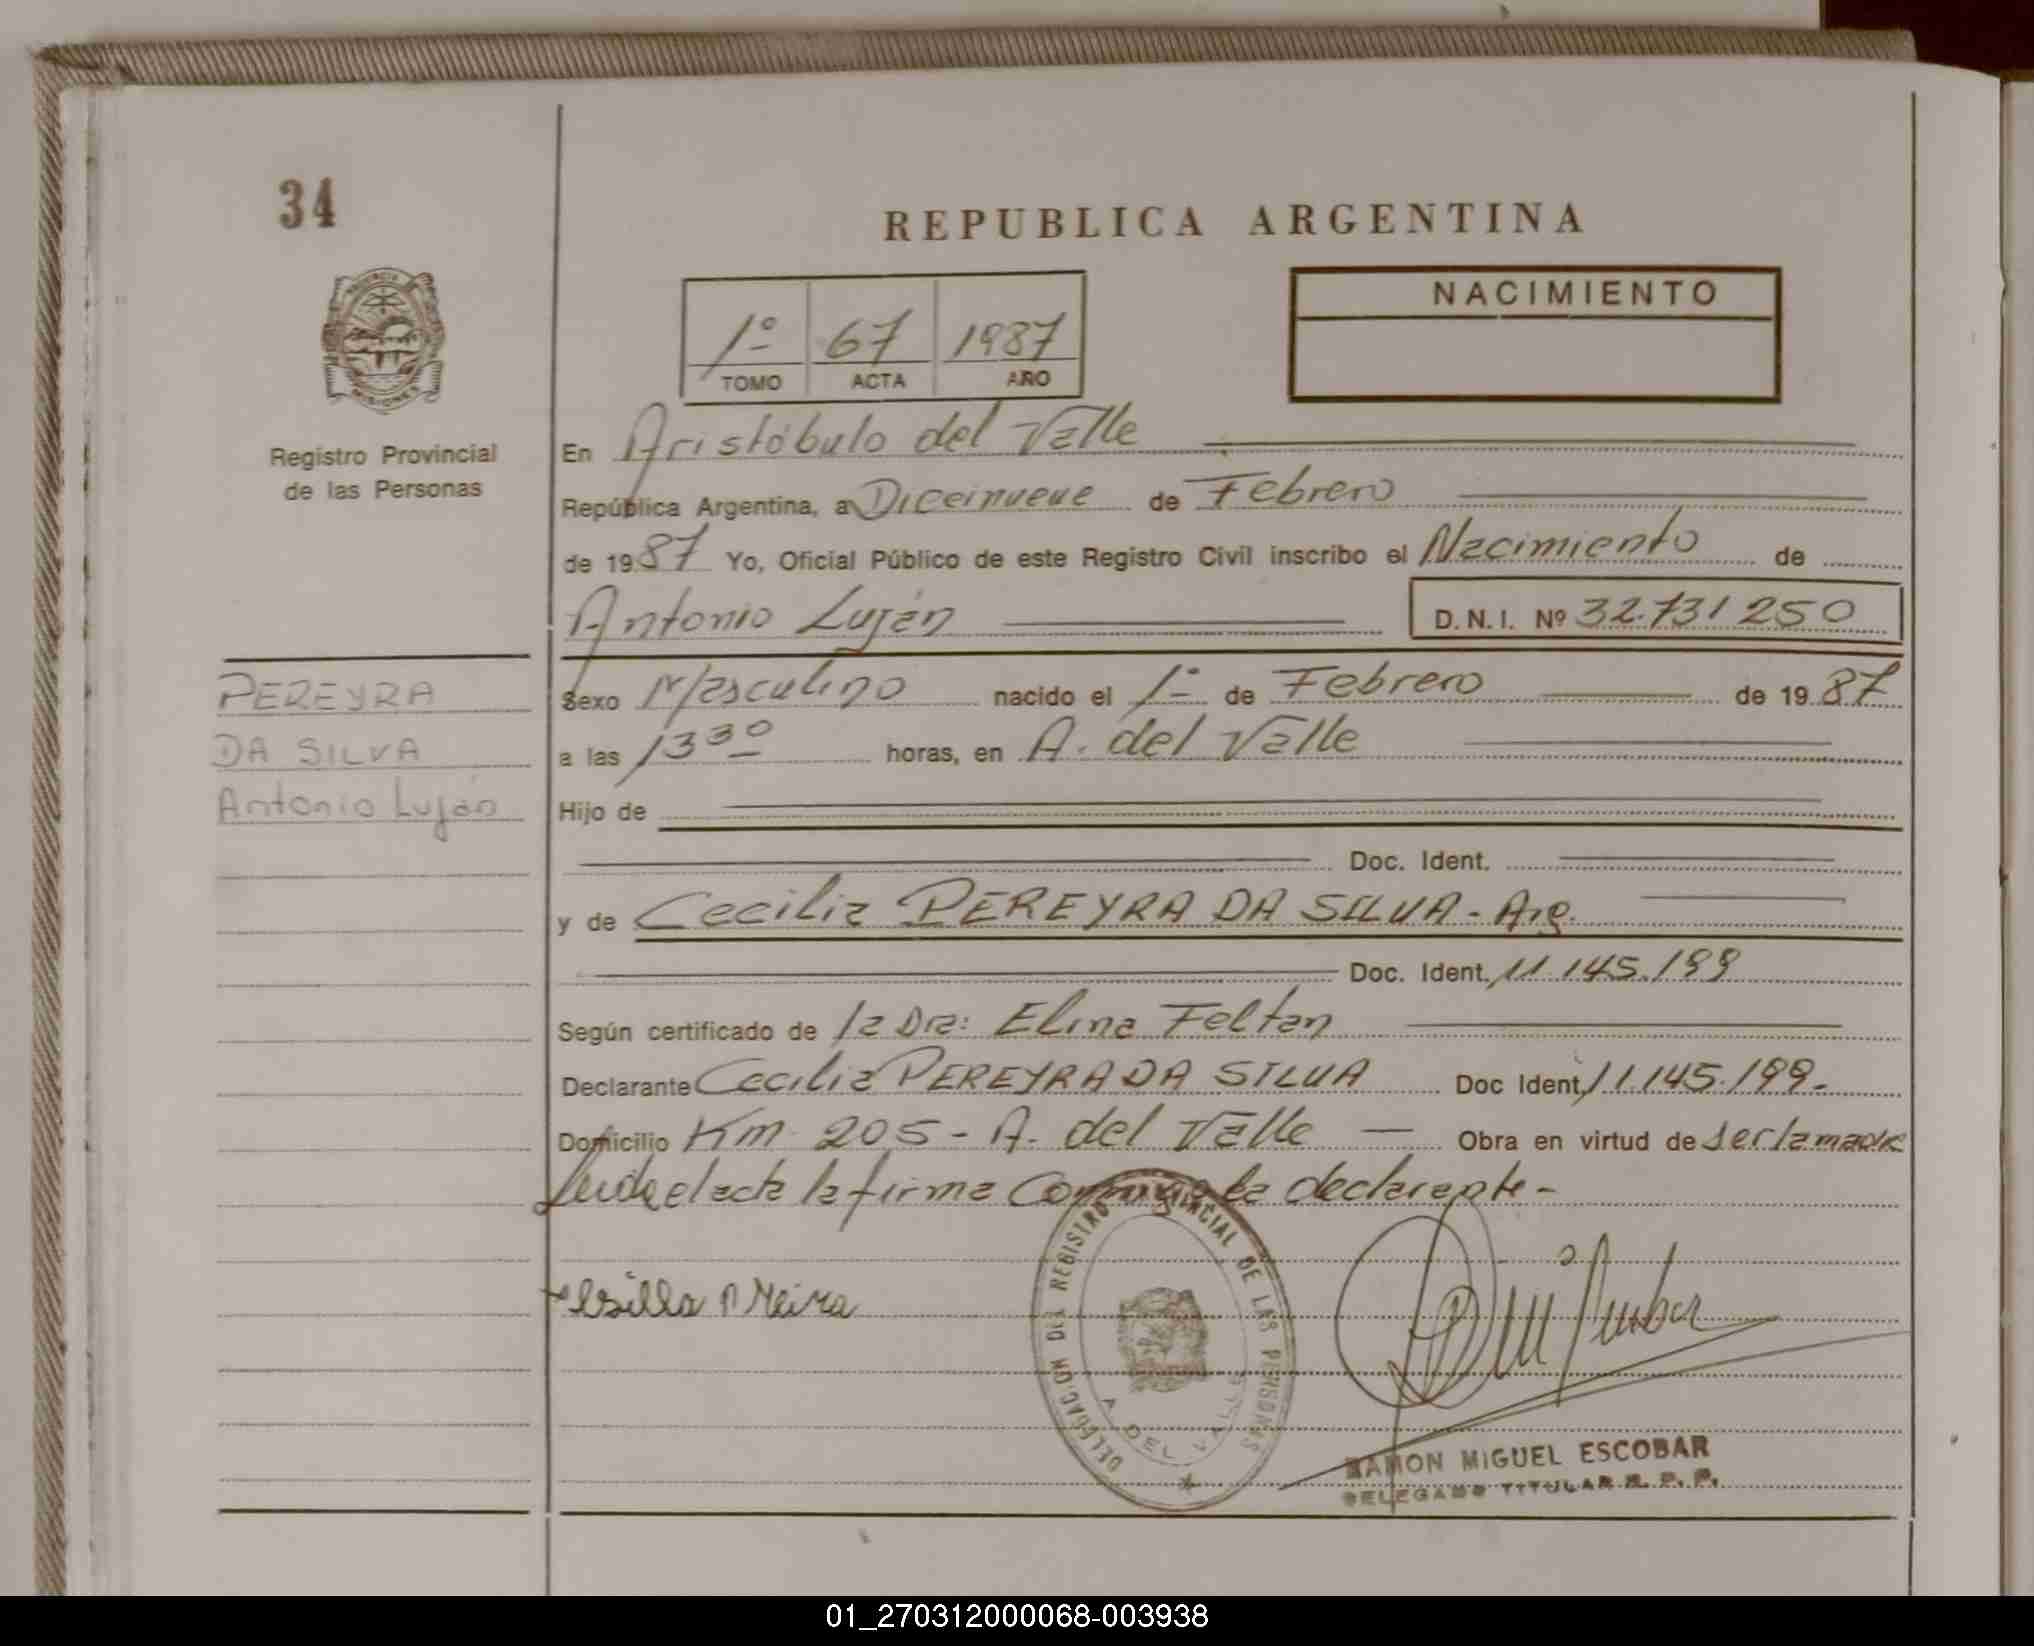 34
REPUBLICA ARGENTINA
PROVINCIA
MISIONES
Registro Provincial
de las Personas
1º 67 1987
TOMO ACTA AÑO
NACIMIENTO
En Aristóbulo del Valle
República Argentina, a Diceinueve de Febrero
de 1987 Yo, Oficial Público de este Registro Civil inscribo el Nacimiento de
Antonio Luján D.N.I. Nº 32.731250
PEREYRA
DA SILVA
Antonio Luján
Sexo Masculino nacido el 1º de Febrero de 1987
a las 13 30 horas, en A. del Valle
Hijo de
Doc. Ident.
y de Cecilia PEREYRA DA SILVA - Arg.
Doc. Ident. 11.145.199
Según certificado de la Dra: Elina Feltan
Declarante Cecilia PEREYRA DA SILVA Doc Ident. 11.145.199.
Domicilio Km 205 - A. del Valle — Obra en virtud de ser la madre
Leida el acta la firma conmigo la declarante -
DELEGACION DEL REGISTRO PROVINCIAL DE LAS PERSONAS
A. DEL VALLE
RAMON MIGUEL ESCOBAR
DELEGADO TITULAR R. P. P.
01_270312000068-003938